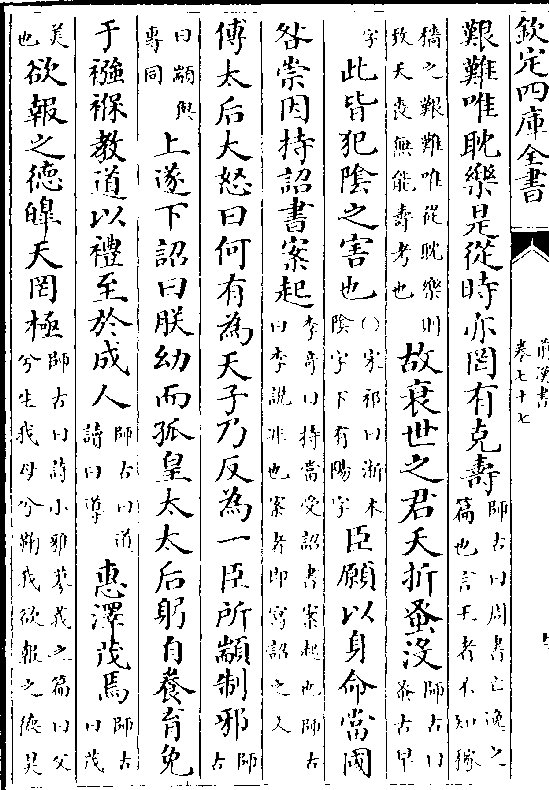 欽定四庫全書
前漢書
卷七十七
艱難唯耽樂是從時亦罔有克壽師古曰周書亡逸之篇也言王者不知稼
穡之艱難唯從耽樂則致天喪無能壽考也故衰世之君夭折蚤没師古曰蚤古早
字此皆犯陰之害也○宋祁曰浙本陰字下有陽字臣願以身命當國
咎崇因持詔書案起李奇曰持當受詔書案起也師古曰李說非也案者即寫詔之文
傅太后大怒曰何有為天子乃反為一臣所顓制邪師古
曰顓與專同上遂下詔曰朕幼而孤皇太太后躬自養育免
于襁褓教道以禮至於成人師古曰道讀曰導惠澤茂焉師古曰茂
美也欲報之德皥天罔極師古曰詩小雅蓼莪之篇曰父兮生我母兮鞠我欲報之德昊